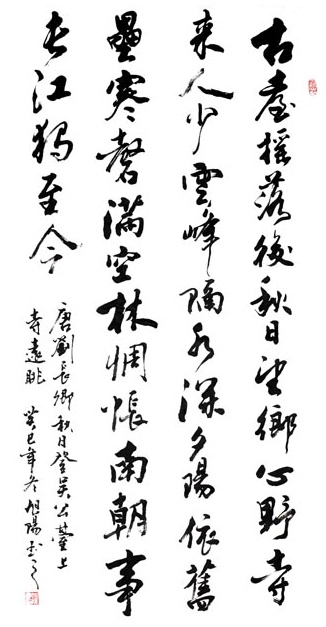 古臺摇落後秋日望鄉心野寺
来人少雲峰隔水深夕陽依舊
壘寒磬滿空林惆悵南朝事
长江獨至今
唐劉長卿秋日登吴公臺上
寺遠眺 癸巳年冬旭陽